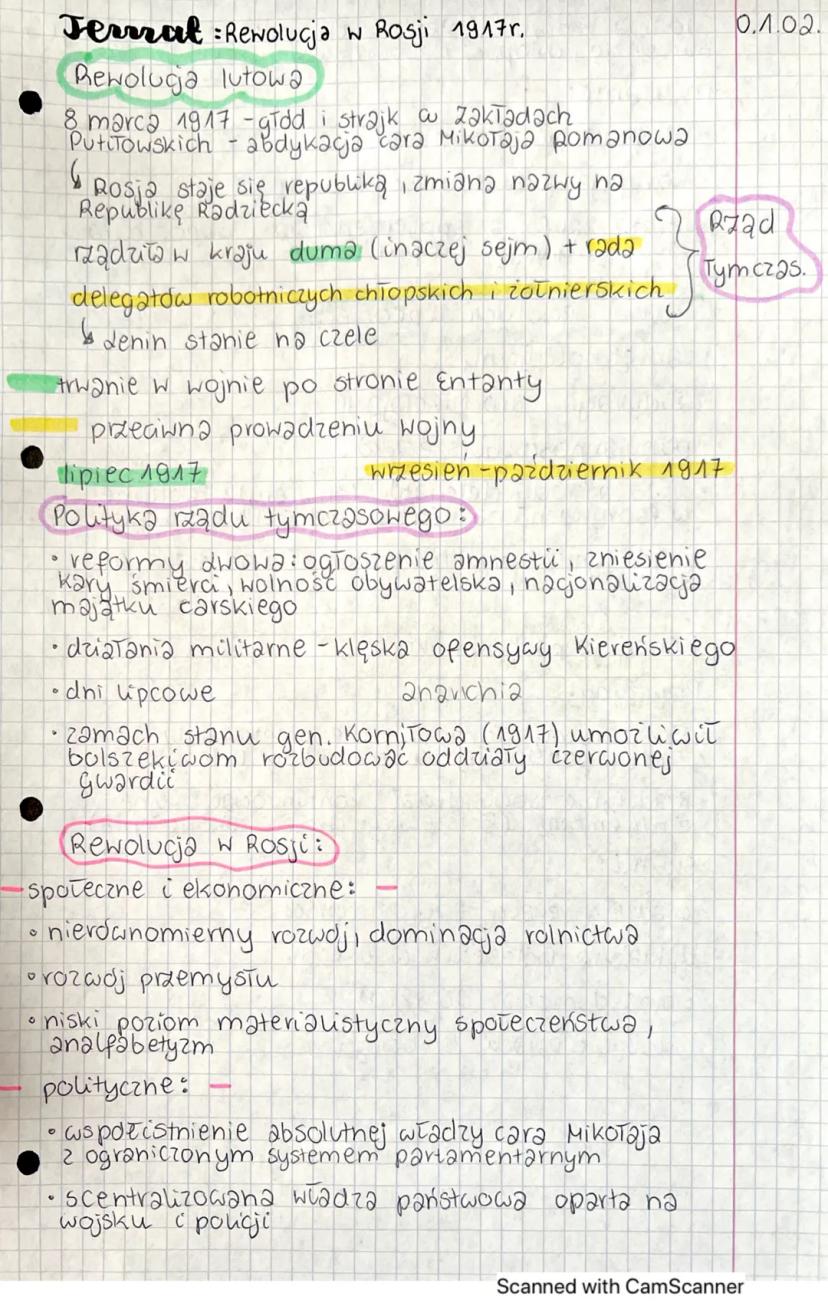 Temat: Rewolucja w Rosji 1917r.
0.1.02.
Rewolucja lutowa
8 marca 1917 - głód i strajk w zakładach
Putiłowskich - abdykacja cara Mikołaja Romanowa
↳ Rosja staje się republiką, zmiana nazwy na
Republikę Radziecką
rządziła w kraju duma (inaczej sejm) + rada
delegatów robotniczych chłopskich i żołnierskich
Rząd
Tymczas.
↳ Lenin stanie na czele
trwanie w wojnie po stronie Ententy
przeciwna prowadzeniu wojny
lipiec 1917 wrzesień-październik 1917
Polityka rządu tymczasowego:
• reformy dwowa: ogłoszenie amnestii, zniesienie
kary śmierci, wolność obywatelska, nacjonalizacja
majątku carskiego
• działania militarne - klęska ofensywy Kiereńskiego
• dni lipcowe anarchia
• zamach stanu gen. Korniłowa (1917) umożliwił
bolszekiwom rozbudować oddziały czerwonej
gwardii
Rewolucja w Rosji:
- społeczne i ekonomiczne: -
• nierównomierny rozwój, dominacja rolnictwa
• rozwój przemysłu
• niski poziom materialistyczny społeczeństwa,
analfabetyzm
- polityczne: -
• współistnienie absolutnej władzy cara Mikołaja
z ograniczonym systemem parlamentarnym
• scentralizowana władza państwowa oparta na
wojsku i policji
Scanned with CamScanner